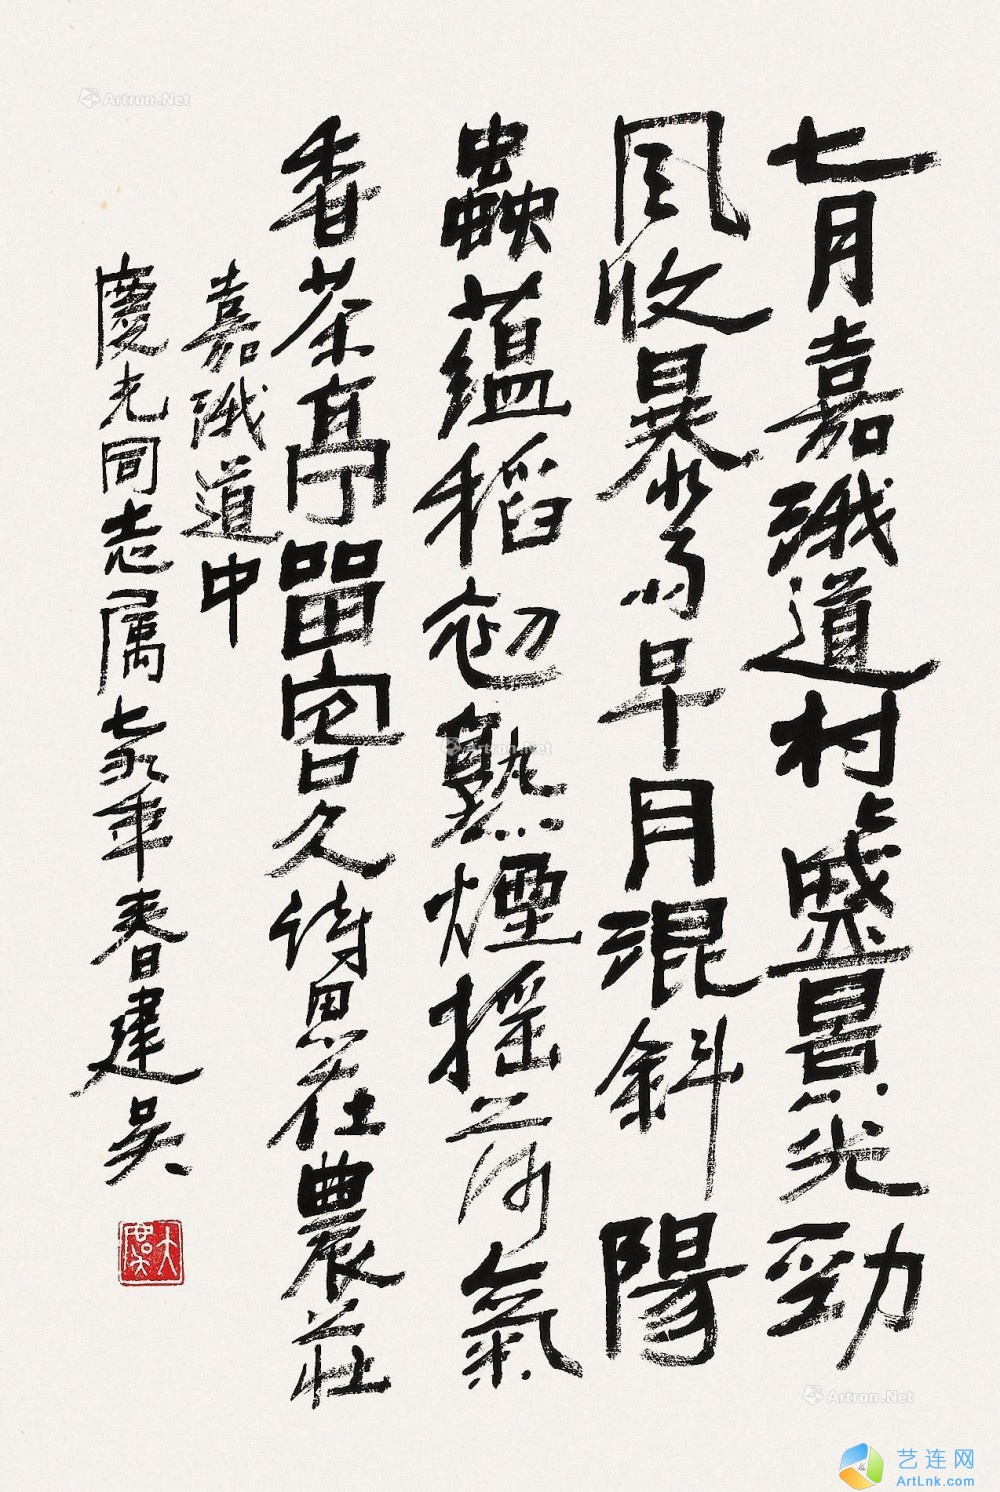 七月嘉涐道村〻盛暑光勁
風收暴雨早月混斜陽
蟲蕴稻初熟煙摇荷氣
香茶亭留客久詩思在農莊
嘉涐道中
慶光同志属七六年春建吴
Artron.Net
Artron.Net
Artron.Net
艺连网
ArtLnk.com